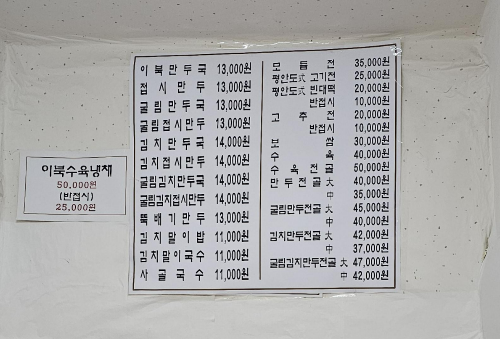 이북수육냉채
50,000원
(반접시)
25,000원
이북만두국 13,000원
접시만두 13,000원
굴림만두국 13,000원
굴림접시만두 13,000원
김치만두국 14,000원
김치접시만두 14,000원
굴림김치만두국 14,000원
굴림김치접시만두 14,000원
뚝배기만두 13,000원
김치말이밥 11,000원
김치말이국수 11,000원
사골국수 11,000원
모듬전 35,000원
평안도式 고기전 25,000원
평안도式 빈대떡 20,000원
반접시 10,000원
고추전 20,000원
반접시 10,000원
보쌈 30,000원
수육 40,000원
수육전골 50,000원
만두전골 大 40,000원
中 35,000원
굴림만두전골 大 45,000원
中 40,000원
김치만두전골 大 42,000원
中 37,000원
굴림김치만두전골 大 47,000원
中 42,000원